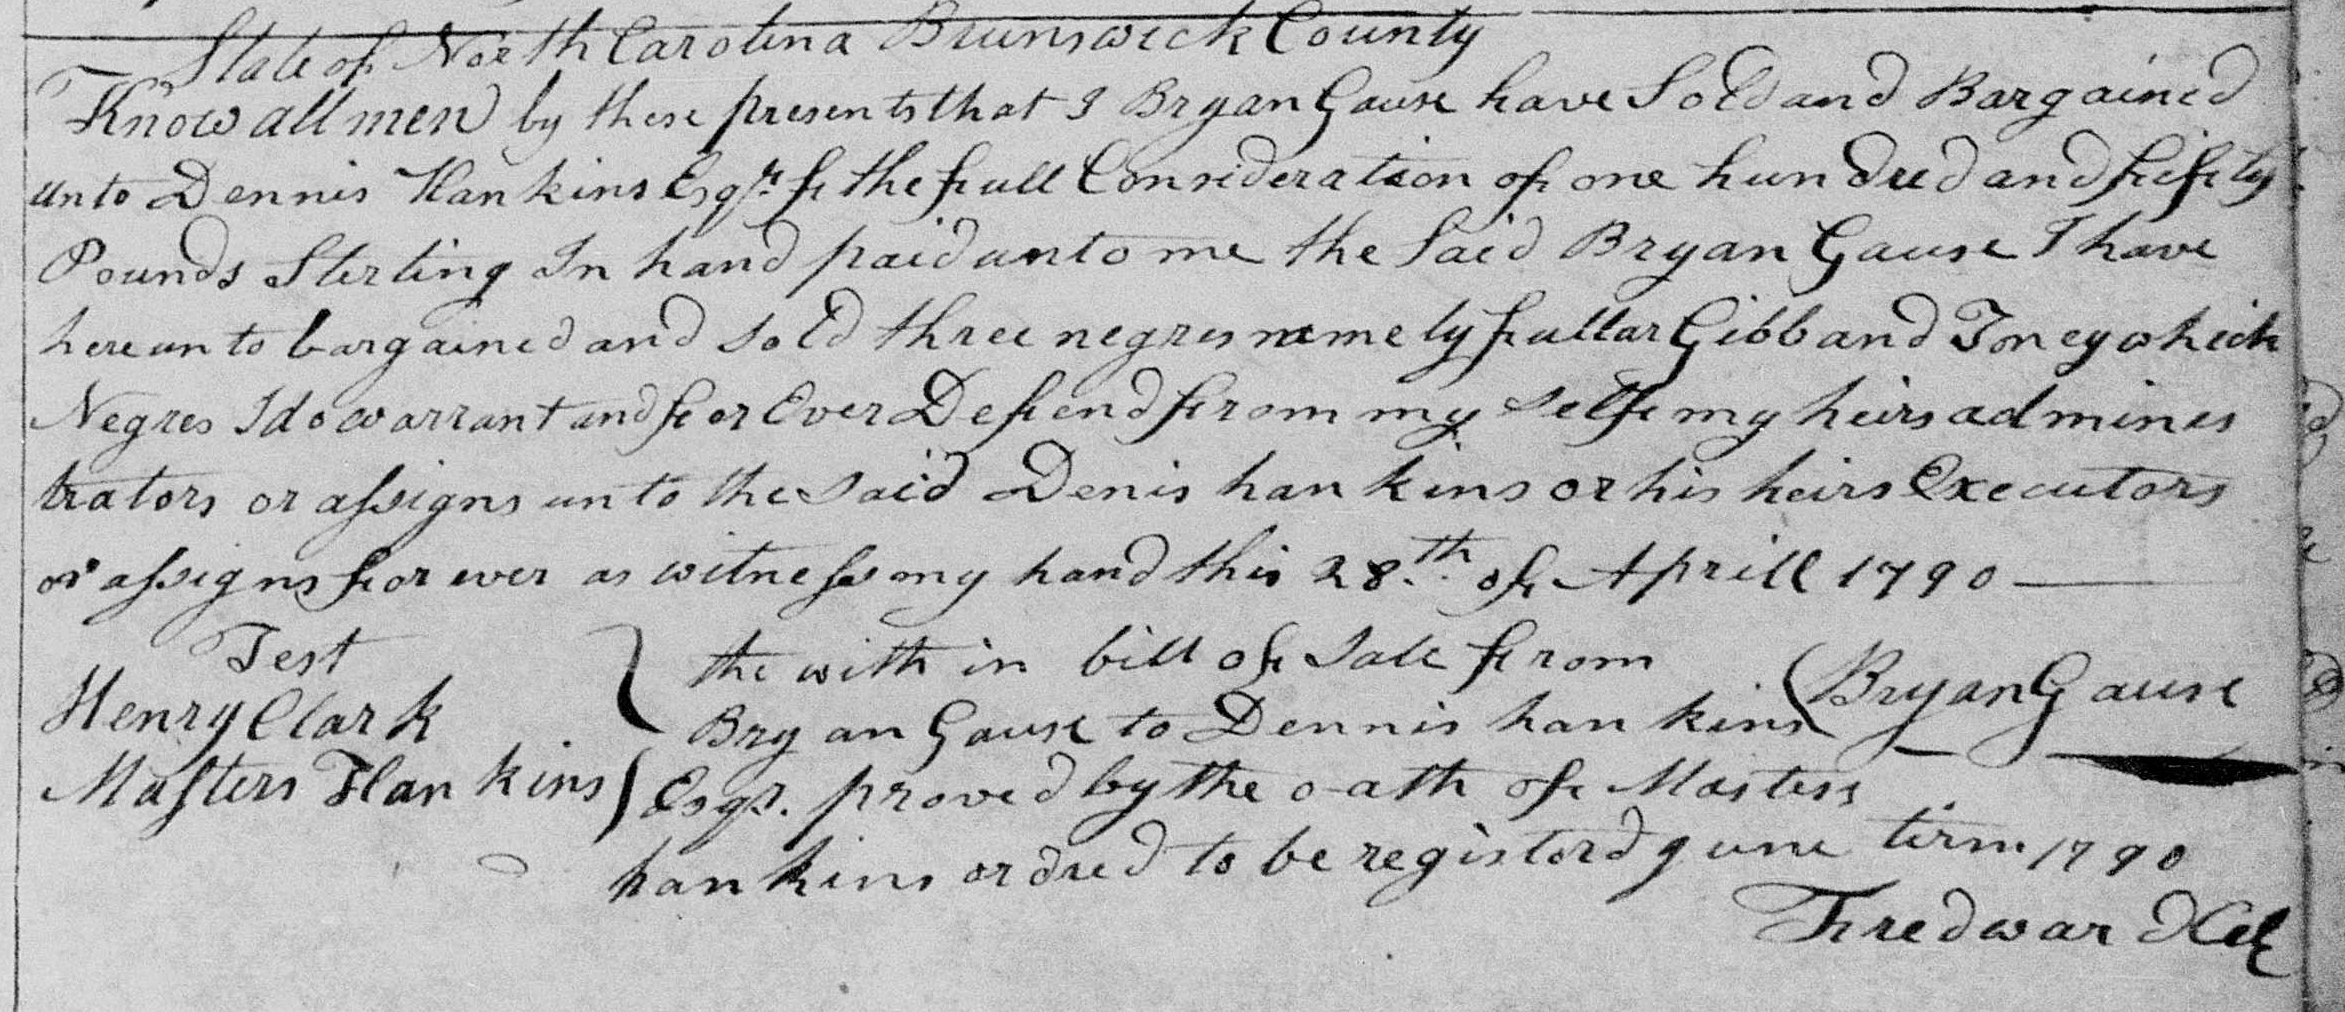 State of North Carolina Brunswick County
Know all men by these presents that I Bryan Gause have Sold and Bargained
unto Dennis Hankins Esqr. f the full Consideration of one hundred and fifty
Pounds Sterling In hand paid unto me the Said Bryan Gause I have
hereunto bargained and sold three negres namely fullar Gibb and Toney which
Negres I do warrant and for Ever Defend from my self my heirs adminis
trators or assigns unto the said Denis hankins or his heirs Executors
or assigns for ever as witness my hand this 28.th of Aprill 1790
Test
Henry Clark
Masters Hankins
the with in bill of Sale from
Bryan Gause to Dennis hankins
Esqr. proved by the oath of Masters
hankins ordred to be registord June term 1790
Bryan Gause
Fred war